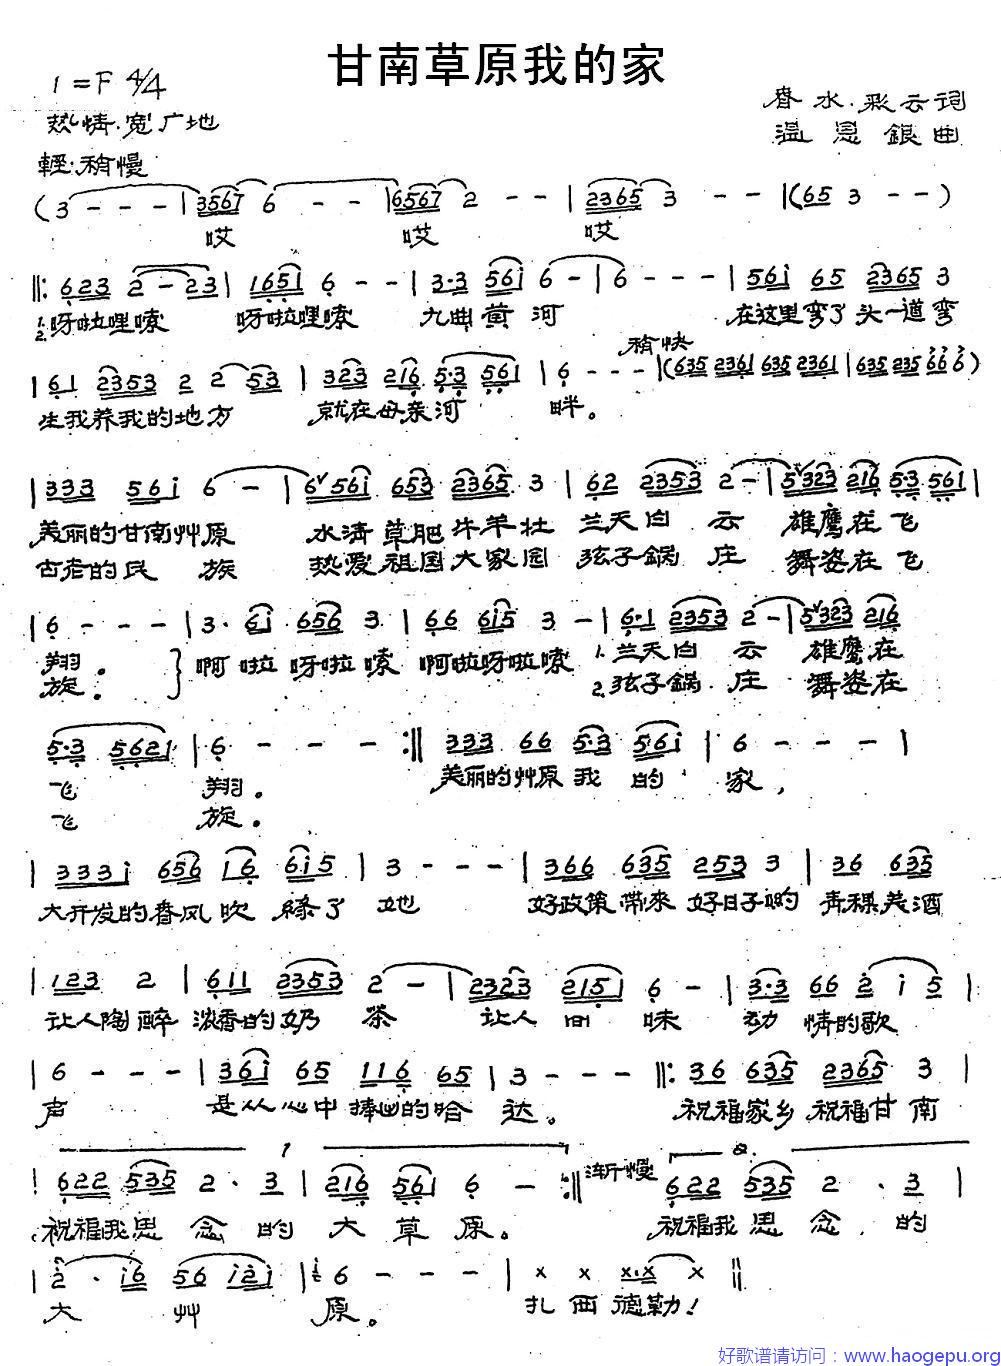 甘南草原我的家
1=F 4/4
热情·宽广地
春水·彩云词
温恩銀曲
輕·稍慢
(3 - - - | 3567 6 - - | 6567 2 - - | 2365 3 - - | (65 3 - - )
哎 哎 哎
‖: 623 2 - 23 | 1651 6 - - | 3·3 561 6 - | 6 - - - | 561 65 2365 3
1.2. 呀啦哩嗦 呀啦哩嗦 九曲黄河 在这里弯了头一道弯
稍快
| 61 2353 2 2 53 | 323 216 5·3 561 | 6 - - - | (635 2361 635 2361 | 635 235 66 6 )
生我养我的地方 就在母亲河 畔。
| 333 561 6 - | 6561 653 2365 3 | 62 2353 2 - | 5323 216 5·3 561 |
美丽的甘南艸原 水清草肥牛羊壮 兰天白云 雄鹰在飞
古老的民族 热爱祖国大家园 弦子鍋庄 舞姿在飞
| 6 - - - | 3· 61 656 3 | 66 615 3 - | 6·1 2353 2 - | 5323 216
翔。 啊啦呀啦嗦 啊啦呀啦嗦 1.兰天白云 雄鹰在
旋。 2.弦子鍋庄 舞姿在
5·3 5621 | 6 - - - :‖ 333 66 5·3 561 | 6 - - - |
飞 翔。 美丽的艸原我的家,
飞 旋。
| 3331 656 16 615 | 3 - - - | 366 635 253 3 | 36 635
大开发的春风吹綠了她 好政策带來好日子喲 青稞美酒
| 123 2 | 611 2353 2 - | 2323 215 6 - | 3·3 66 2 1 5 |
让人陶醉 浓香的奶茶 让人回味 动情的歌
| 6 - - - | 361 65 116 65 | 3 - - - ‖: 36 635 2365 3 |
声 是从心中捧出的哈达。 祝福家乡祝福甘南
1 渐慢 2
| 622 535 2· 3 | 216 561 6 - :‖ 622 535 2· 3 |
祝福我思念的大草原。 祝福我思念的
| 2· 16 56 121 | 6 - - - | x x x·x x ‖
大艸原。 扎西德勒!
好歌谱请访问：www.haogepu.org